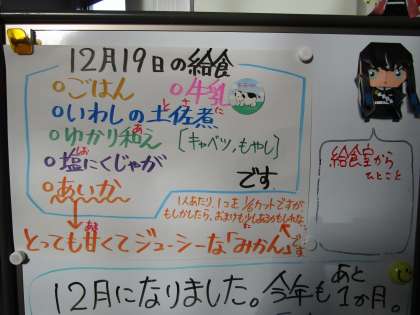 12月19日の給食
○ごはん ○牛乳
○いわしの土佐煮
とさに
○ゆかり和え [キャベツ,もやし]
あ
○塩にくじゃが
しお
○あいか です。
1人あたり、1つを1/2カットですが
もしかしたら、おまけも少しあるかもしれない
とっても甘くてジューシーな「みかん」です
あま
給食室から
ひとこと
12月になりました。今年もあと
1か月。